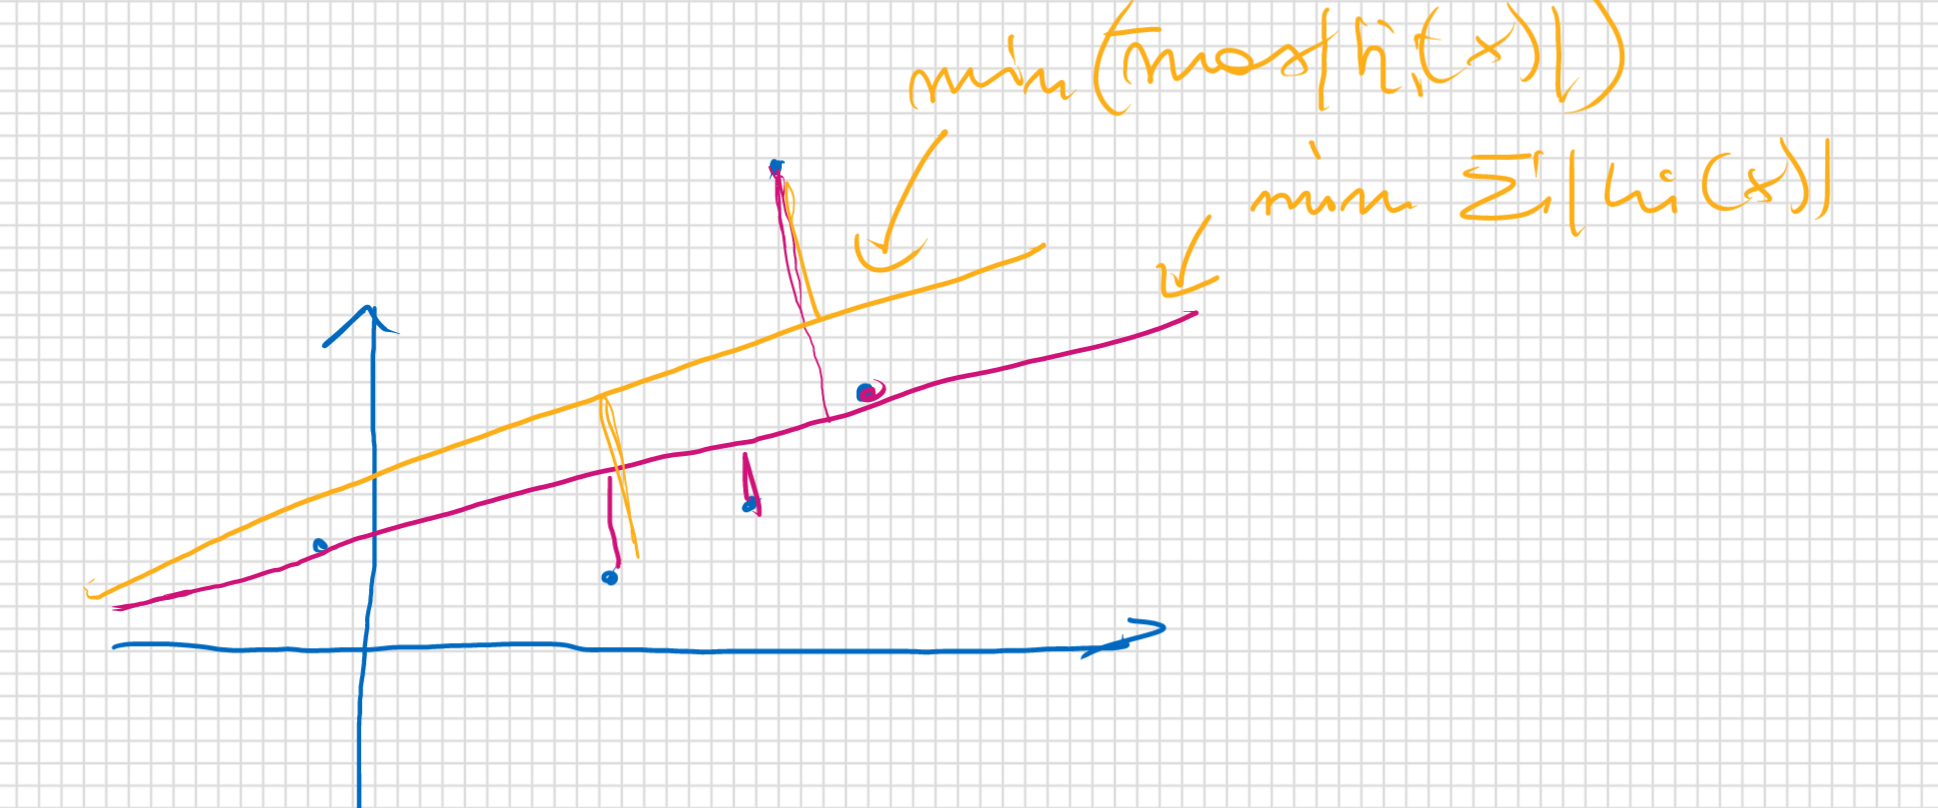 min (max|hi(x)|)
min Σ|hi(x)|